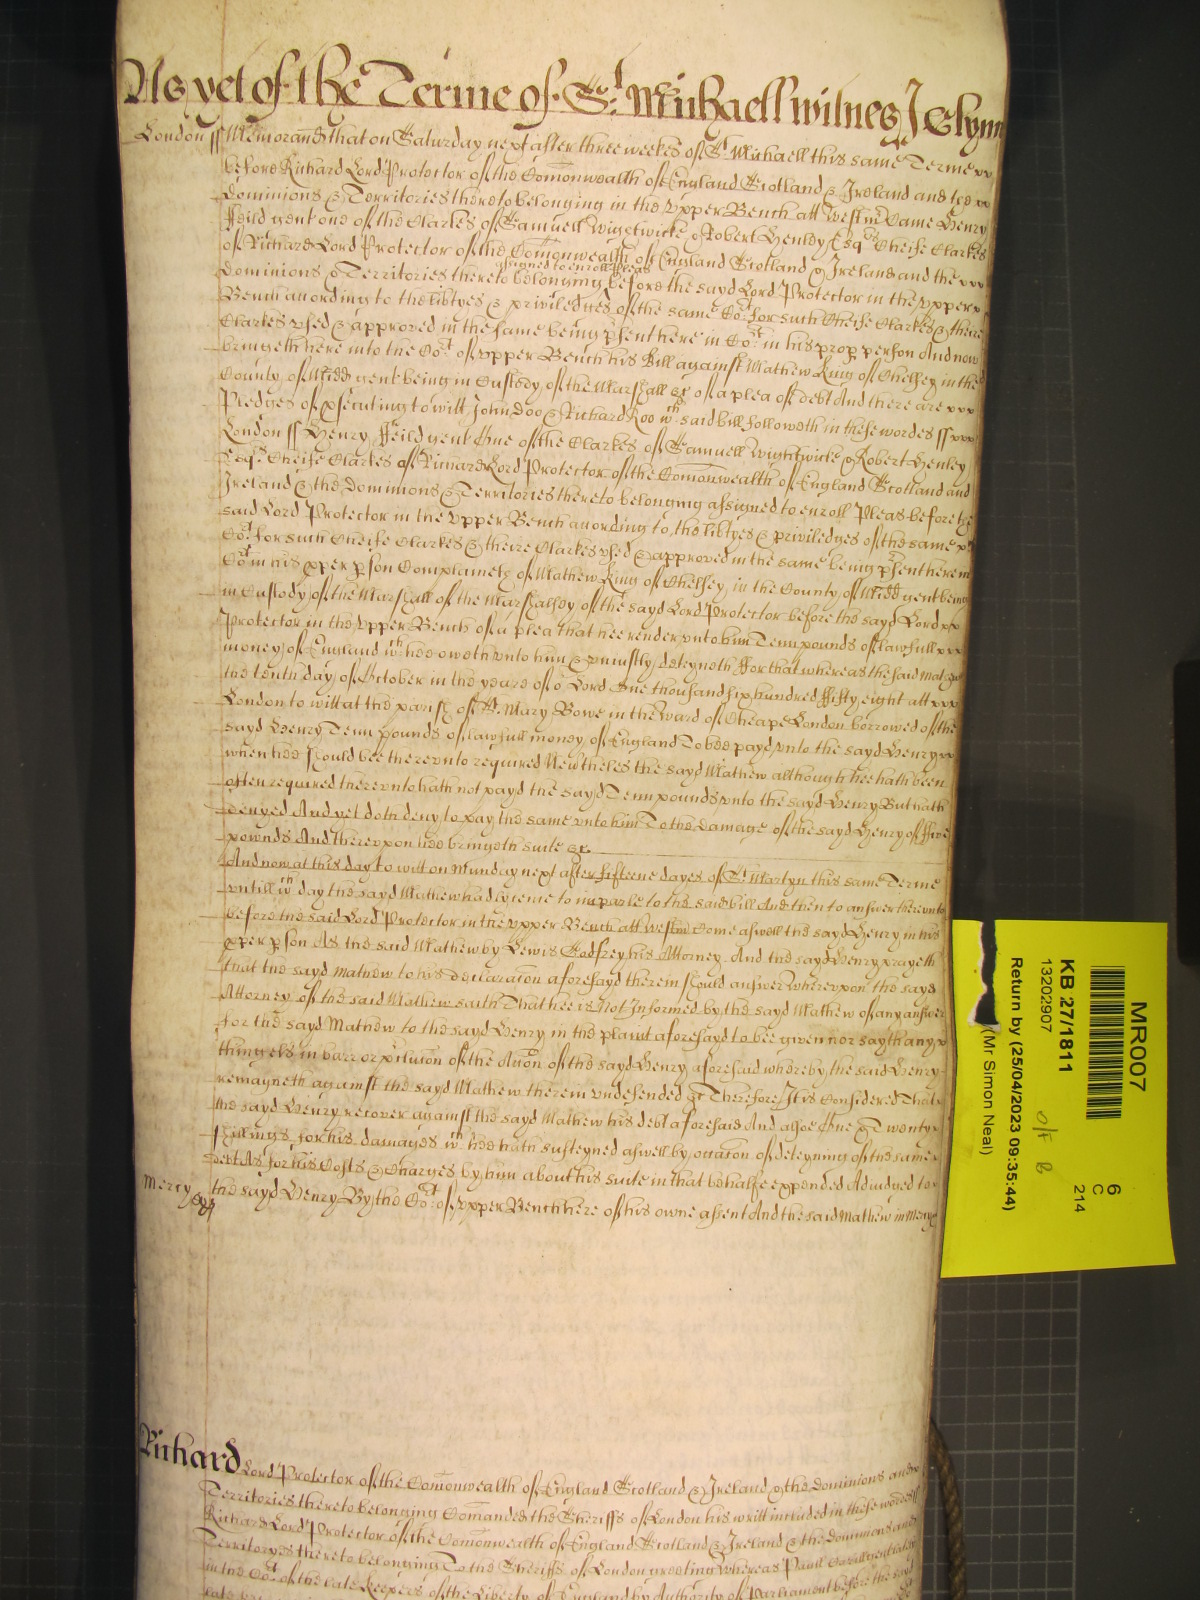 As yet of the Terme of St Michaell wittnes Jekynn
London ss Memorand that on Saturday next after three weekes of St Michaell this same Terme
before Richard Lord Protector of the Comonwealth of England Scotland & Ireland and the
Dominions & Territories thereto belonging in the Upper Bench att Westmr Came Henry
Feild gent one of the Clarkes of Samuell Wigstwicke & Robert Henley Esqrs Cheife Clarkes
of Richard Lord Protector of the Comonwealth of England Scotland & Ireland and the
assigned to enroll Pleas
Dominions & Territories thereto belonging before the sayd Lord Protector in the Upper
Bench acording to the libtyes & priviledges of the same Cot for such Cheife Clarkes & theire
Clarkes vsed & approved in the same being psent here in Cot in his prop person And now
bringeth here into the Cot of vpper Bench his Bill against Mathew King of Chelsey in the
County of Midd gent being in Custody of the Marshall &c of a plea of debt And there are
Pledges of psecuting to witt John Doo & Richard Roo wch said bill followeth in these wordes ss
London ss Henry Feild gent One of the Clarkes of Samuell Wightwicke & Robert Henley
Esqrs Cheife Clarkes of Richard Lord Protector of the Comonwealth of England Scotland and
Ireland & the Dominions & Territories thereto belonging assigned to enroll Pleas before the
said Lord Protector in the Vpper Bench acording to the libtyes & priviledges of the same
Cot for such Cheife Clarkes & theire Clarkes vsed & approved in the same being psent here in
Cot in his pper pson Complaineth of Mathew King of Chelsey in the County of Midd gent being
in Custody of the Marshall of the Marshalsey of the sayd Lord Protector before the sayd Lord
Protector in the Vpper Bench of a plea that hee render vnto him Tenn pounds of lawfull
money of England wch hee oweth vnto him & vniustly deteyneth For that whereas the said Mathew
the tenth day of October in the yeare of or Lord One thousand six hundred fifty eight att
London to witt at the parish of St Mary Bowe in the Ward of Cheape London borrowed of the
sayd Henry Tenn pounds of lawfull money of England To bee payd vnto the sayd Henry
when hee should bee therevnto required Nevtheles the sayd Mathew although hee hath been
often required therevnto hath not payd the sayd Tenn pounds vnto the sayd Henry But hath
denyed And yet doth deny to pay the same vnto him To the damage of the sayd Henry of Five
pounds And therevpon hee bringeth suite &c
And now at this day to witt on Munday next after fifteene dayes of St Martyn this same Terme
vntill wch day the sayd Mathew had lycence to imparle to the said bill And then to answer therevnto
before the said Lord Protector in the vpper Bench att Westmr Come aswell the sayd Henry in his
pper pson As the said Mathew by Lewis Godfrey his Attorney And the sayd Henry prayeth
that the sayd Mathew to his declaracon aforesayd therein should answer Wherevpon the sayd
Attorney of the said Mathew saith That hee is Not Informed by the sayd Mathew of any answer
for the sayd Mathew to the sayd Henry in the plaint aforesayd to bee given nor sayth any
thing els in barr or pclusion of the Accon of the sayd Henry aforesaid whereby the said Henry
remayneth against the sayd Mathew therein vndefended &c Therefore It is Considered That
the sayd Henry recover against the sayd Mathew his debt aforesaid And alsoe One & Twenty
shillings for his damages wch hee hath susteyned aswell by occasion of deteyning of the same
debt As for his Costs & Charges by him about his suite in that behalfe expended Adiudged to
Mercy the sayd Henry By the Cot of vpper Bench here of his owne assent And the said Mathew in Mercy
&c
Richard Lord Protector of the Comonwealth of England Scotland & Ireland & the Dominions and
Territories thereto belonging Comanded the Sheriffs of London his writt included in these wordes ss
Richard Lord Protector of the Comonwealth of England Scotland & Ireland & the Dominions and
Territoryes thereto belonging To the Sheriffs of London greeting Whereas Paull
in the Cot of the late Keepers of the Liberty of England by Authority of Parliament before the sayd
MR007
KB 27/1811
13202907
Return by (25/04/2023 09:35:44)
(Mr Simon Neal)
6
C
214